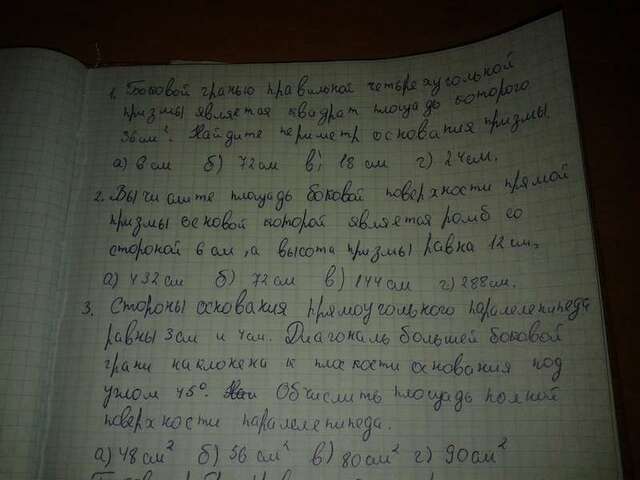 1. Боковой гранью правильной четырехугольной
призмы является квадрат площадь которого
36см². Найдите периметр основания призмы.
а) 6 см б) 72см в) 18 см г) 24см.
2. Вычислите площадь боковой поверхности прямой
призмы основой которой является ромб со
стороной 6 см, а высота призмы равна 12 см.
а) 432см б) 72см в) 144см г) 288см.
3. Стороны основания прямоугольного паралелепипеда
равны 3см и 4см. Диагональ большей боковой
грани наклонена к плоскости основания под
углом 45°. Обчислить площадь полной
поверхности паралелепипеда.
а) 48см² б) 56см² в) 80см² г) 90см²